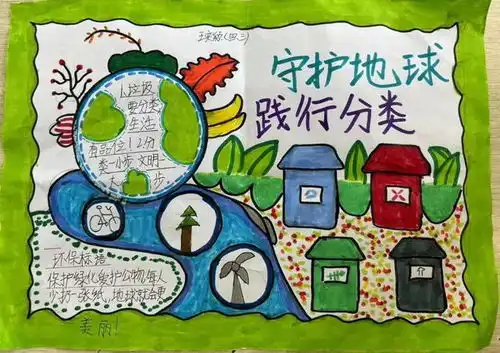 守护地球
践行分类
1、垃圾
要分类
生活
有品位!2分
类一小步 文明一
大步
环保标语
保护绿化爱护公物,每人
少扔一张纸,地球就会更
美丽!